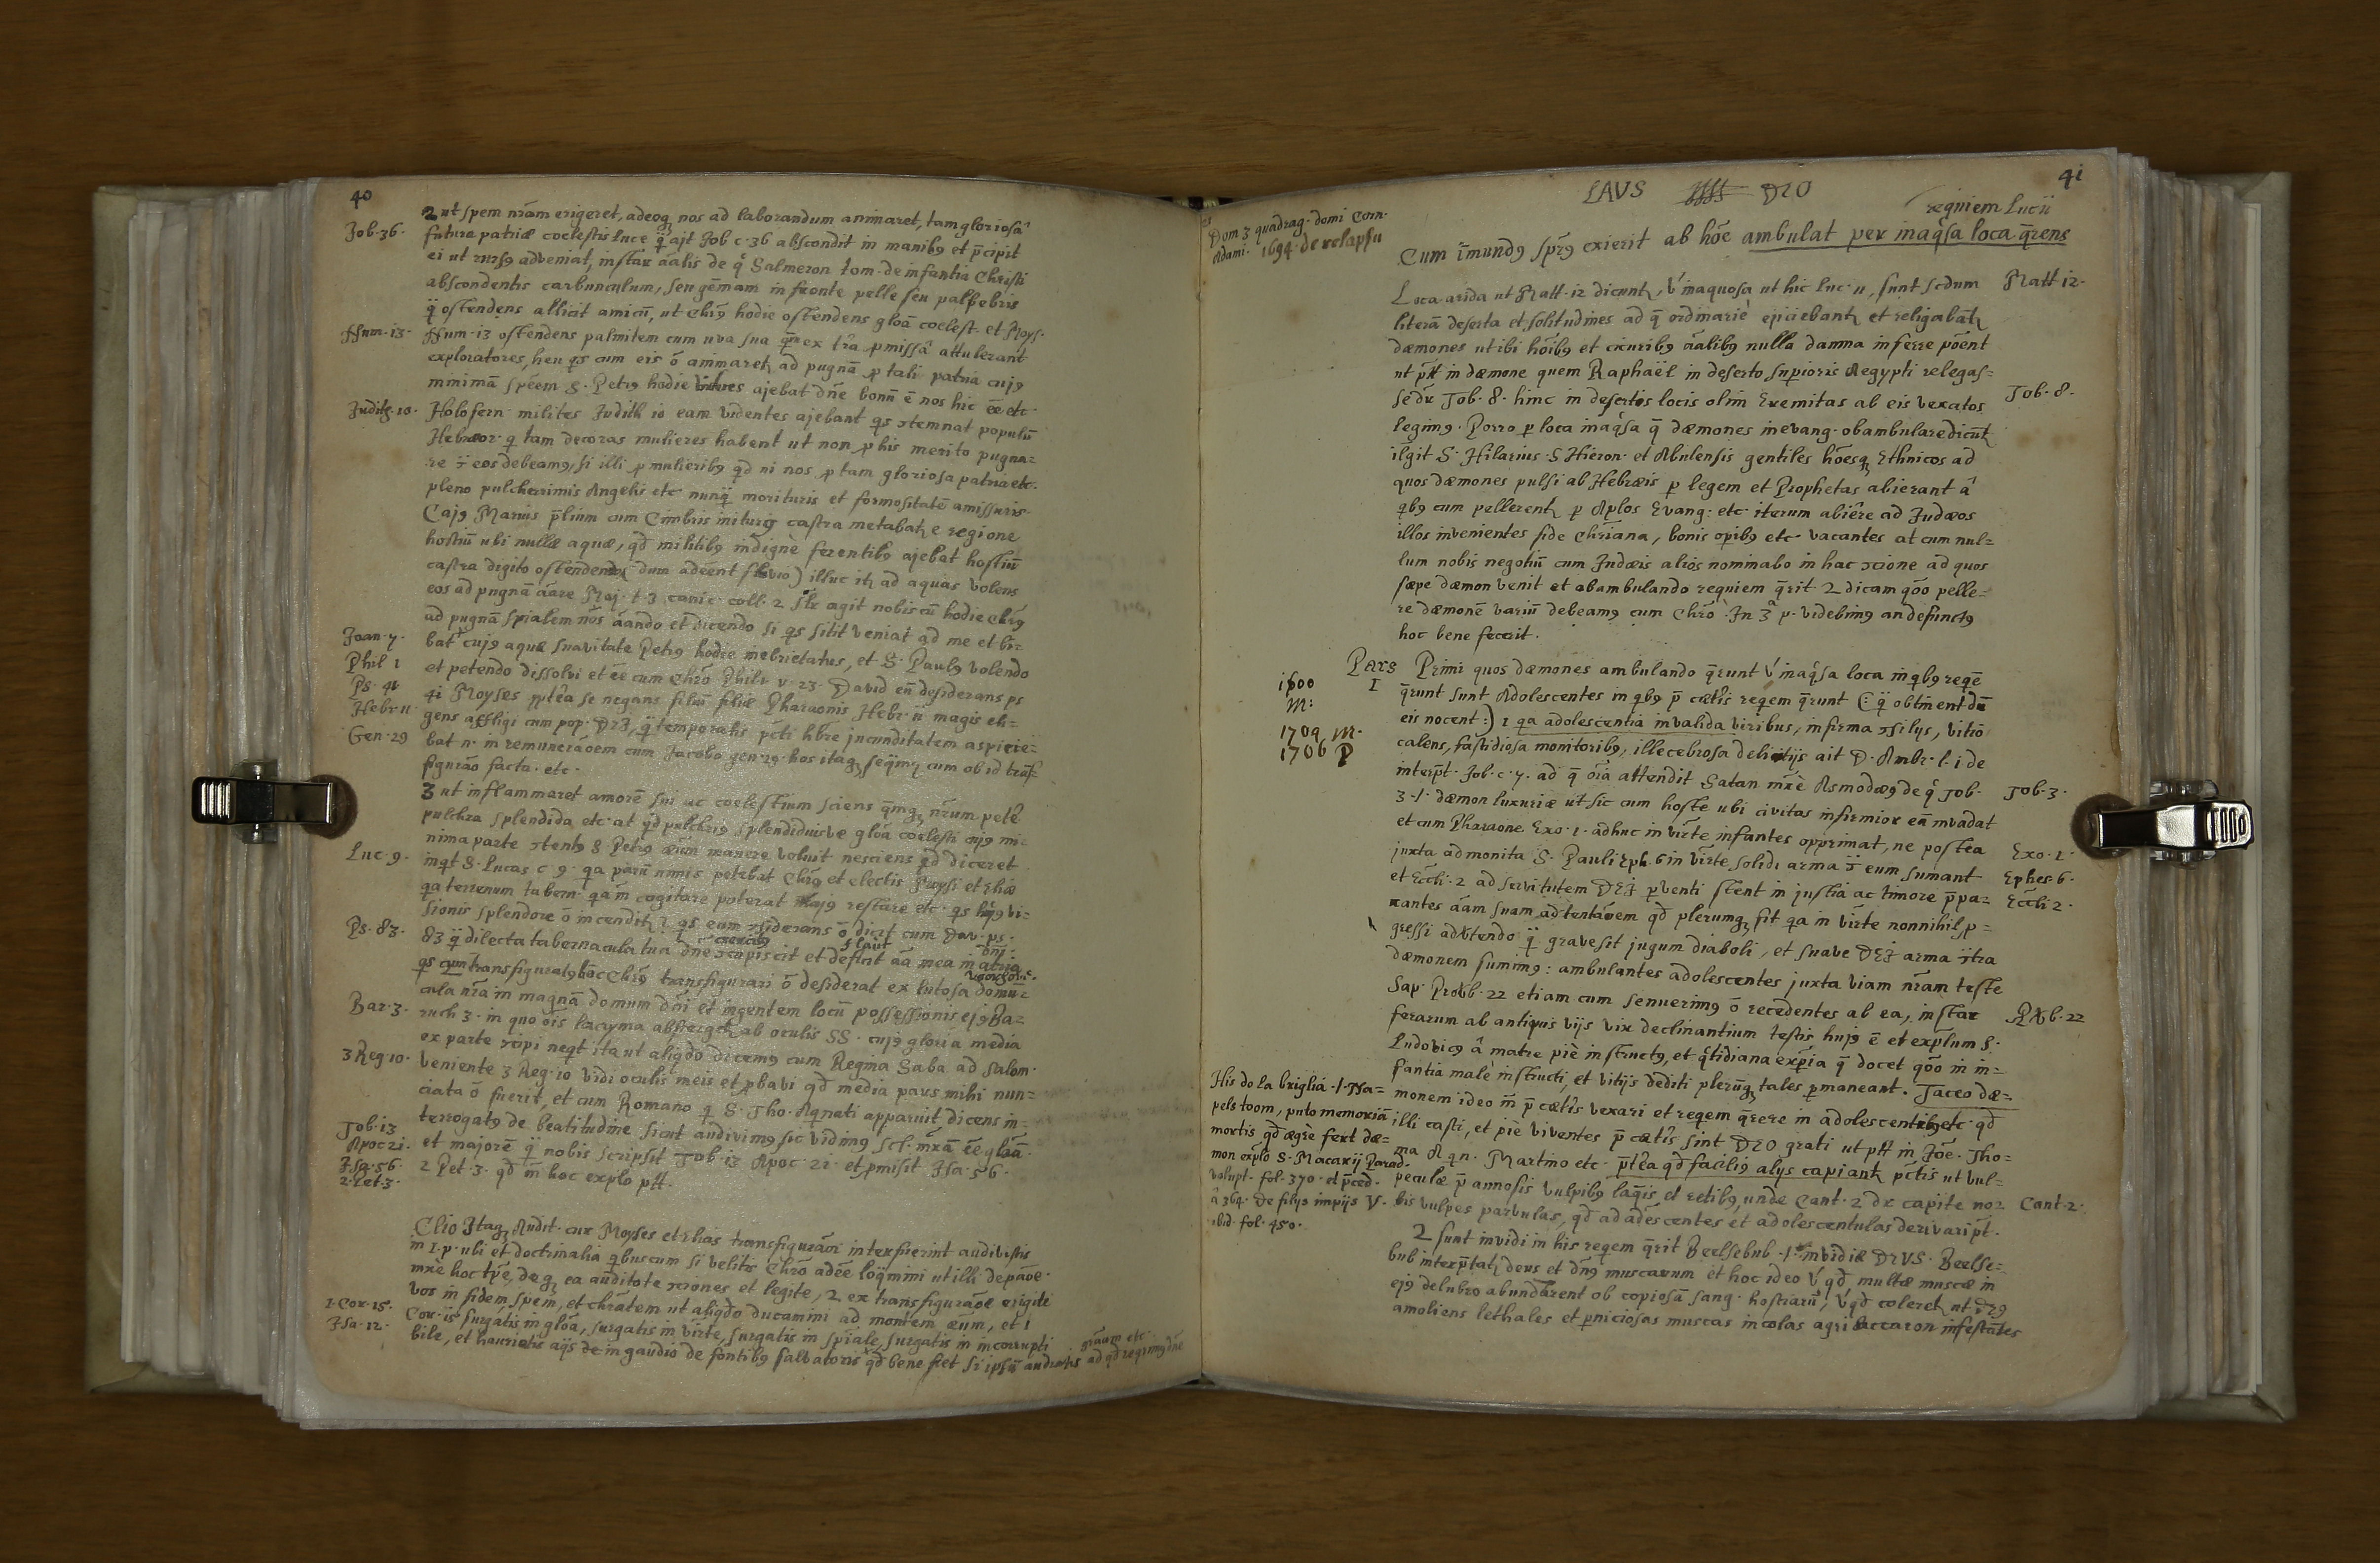 40
Job. 36.
2 ut spem nr̄am erigeret, adeoq; nos ad laborandum animaret, tam gloriosâ
futuræ patriæ coelestis luce q̄ ajt Job c. 36 abscondit in manib9 et p̄cipit
ei ut rurs9 adveniat, instar āalis de q̊ Salmeron tom. de infantia Christi
abscondentis carbunculum, seu gem̄am in fronte pelle seu palpebris
q̄ ostendens allicit amicū, ut Chr̄9 hodie ostendens gloā coelest. et Moys.
Num. 13.
Num. 13 ostendens palmitem cum uva sua q̄ ex tr̄a p̱missâ attulerant
exploratores, heu q̱s cum eis ō animaret ad pugnā p̱ tali patria cuj9
minimā spēem S. Petr9 hodie videns ajebat dn̄e bonū ē nos hic ēe etc.
Judith. 10.
Holofern. milites Judith 10 eam videntes ajebant q̱s ɔtemnat populū
Hebræor. q tam decoras mulieres habent ut non p̱ his merito pugna=
re ɔ̄ eos debeam9, si illi p̱ mulierib9 qd̄ ni nos p̱ tam gloriosa patria etc.
pleno pulcherrimis Angelis etc nunq̄ morituris et formositatē amissuris.
Caj9 Marius p̄lium cum Cimbris initur9 castra metabat e regione
hostiū ubi nullæ aquæ, qd̄ militib9 indignè ferentib9 ajebat hostiū
castra digito ostendendo (dum adēent fluvio) illuc it ad aquas volens
eos ad pugnā āare Maj. t. 3 canic. coll. 2 sīr agit nobiscū hodie Chr̄9
ad pugnā spialem nōs āando et dicendo si q̱s sitit veniat ad me et bi=
Joan. 7.
bat cuj9 aquæ suavitate Petr9 hodie inebrietatus, et S. Paul9 volendo
Phil 1
et petendo dissolvi et ēe cum Chrō Phil 1 v. 23. David en̄ desiderans ps
Ps. 41
41 Moyses p̱ptēa se negans filiū filiæ Pharaonis Hebr. 11 magis eli=
Hebr 11
gens affligi cum pop. DEI, q̄ temporalis pc̄ti hr̄e jucunditatem aspicie=
Gen. 29
bat n. in remuneraōem cum Jacobo gen 29. hos itaq; seq̄mr cum ob id trās=
figurāo facta. etc.
3 ut inflammaret amorē sui ac coelestium sciens q̄mq; nr̄um petē
pulchra splendida etc. at qd̄ pulchri9 splendidiusve gloā coelesti cuj9 mi=
nima parte ɔtent9 S. Petr9 æum manere voluit nesciens qd̄ diceret
Luc. 9.
inqt S. Lucas c. 9. qa parū nimis petebat Chr̄9 et electis Moysi et Eliæ
qa terrenum tabern. qām cogitare poterat maj9 restare etc. q̱s huj9 vi=
sionis splendore ō incendit? q̱s eum ɔsiderans ō dicit cum Dav. ps.
Ps. 83.
83 q̄ dilecta tabernacula tua dn̄e ɔcupiscit et deficit āa mea in atria
dn̄i.
q̱s cum transfigurat9 hoc Chr̄9 transfigurari ō desiderat ex lutosa domū=
cula nr̄a in magnā domum dn̄i et ingentem locū possessionis ej9 Ba=
Bar. 3.
ruch 3. in quo ōis lacryma absterget ab oculis SS. cuj9 gloria media
ex parte ɔcipi neqt ita ut aliqdo dicam9 cum Regina Saba ad Salom.
3 Reg. 10.
veniente 3 Reg. 10 vidi oculis meis et p̱bavi qd̄ media pars mihi nun=
ciata ō fuerit, et cum Romano q S. Tho. Aqnati apparuit dicens in=
terrogat9 de beatitudine sicut audivim9 sic vidim9 scl. mr̄ā ēe gloā
Tob. 13
Apoc 21.
et majorē q̄ nobis scripsit Tob. 13 Apoc. 21. et p̱misit Isa. 56.
Isa. 56.
2. Pet. 3.
2 Pet. 3. qd̄ in hoc explo ptt.
Clio Itaq; Audit. cur Moyses et Elias transfigurāoi interfuerint audivistis
in I. p. ubi et doctrinalia qbuscum si velitis Chrō adēe loq̄mini ut illi de pāoe.
mr̄è hoc tp̄e, deq; ea auditote ɔciones et legite, 2 ex transfigurāoe erigite
vos in fidem, spem, et chrātem ut aliqdo ducamini ad montem æum, et 1
1. Cor. 15.
Cor. 15 surgatis in gloā, surgatis in virtē, surgatis in spiale, surgatis in incorrupti
Isa. 12.
bile, et hauriatis aq̄s in gaudio de fontib9 salvatoris qd̄ bene fiet si ipsū audiatis ad qd̄ reqrim9 dn̄e
grāam etc.
LAVS DEO
41
Dom 3 quadrag. domi Com.
Adami. 1694. de relapsu
requiem Luc 11
Cum im̄und9 spr̄9 exierit ab hōe ambulat per inaq̊sa loca q̄rens
Loca arida ut Matt. 12 dicunt, v́ inaquosa ut hic Luc. 11, sunt scdum
Matt 12.
literā deserta et solitudines ad q̄ ordinariè ejiciebant et religabāt
dæmones ut ibi hōib9 et cicurib9 āalib9 nulla damna inferre poēnt
ut ptt in dæmone quem Raphaël in deserto superioris Aegypti relegas=
Tob. 8.
sē dr̄ Tob. 8. hinc in desertis locis olim Eremitas ab eis vexatos
legim9. Porro p̱ loca inaq̊sa q̄ dæmones in evang. obambulare dicūt
ilgit S. Hilarius. S. Hieron. et Abulensis gentiles hōesq; Ethnicos ad
quos dæmones pulsi ab Hebræis p̱ legem et Prophetas abierant â
qb9 cum pellerent p̱ Aplos Evang: etc. iterum abiêre ad Judæos
illos invenientes fide Chr̄iana, bonis opib9 etc. vacantes at cum nul=
lum nobis negotiū cum Judæis aliòs nominabo in hac ɔcione ad quos
sæpe dæmon venit et obambulando requiem q̄rit 2 dicam qōo pelle=
re dæmonē variū debeam9 cum Chrō. In 3ª p. videbim9 an defunct9
hoc bene fecerit.
Pars
I
1600
M:
1709 M.
1706 P
Primi quos dæmones ambulando q̄runt v́ inaq̊sa loca in qb9 reqē
q̄runt sunt Adolescentes in qb9 p̄ cæt̂is reqem q̄runt (: q̄ obtinent dū
eis nocent :) 1 qa adolescentia invalida viribus, infirma ɔsilijs, vitiò
calens, fastidiosa monitorib9, illecebrosa delicijs ait D. Ambr. l. 1 de
interp̄t. Job. c. 7. ad q̄ ōiā attendit Satan mr̄è Asmodæ9 de q̊ Tob.
Tob. 3.
3. .i. dæmon luxuriæ ut sic cum hoste ubi civitas infirmior eā invadat
et cum Pharaone Exo. 1. adhuc in virtē infantes opprimat, ne postea
Exo. 1.
juxta admonita S. Pauli Eph. 6 in virtē solidi arma ɔ̄ eum sumant
Ephes. 6.
et Eccli. 2 ad servitutem DEI p̱venti stent in justiā ac timore p̄pa=
Eccli 2.
rantes āam suam ad tentāoem qd̄ plerumq; fit qa in virtē nonnihil p̱=
gressi advtendo q̄ grave sit jugum diaboli, et suave DEI arma ɔ̄tra
dæmonem sumim9: ambulantes adolescentes juxta viam nr̄am teste
Sap. Provb. 22 etiam cum senuerim9 ō recedentes ab ea, instar
Provb. 22
ferarum ab antiquis vijs vix declinantium testis huj9 ē et explum S.
Ludovic9 â matre piè instruct9, et q̊tidiana expīa q̄ docet qōo in in=
fantia malè instructi, et vitijs dediti plerūq; tales p̱maneant. Taceo dæ=
monem ideo in p̄ cæt̂is vexari et reqem q̄rere in adolescentib9 etc. qd̄
illi casti, et piè viventes p̄ cæt̂is sint DEO grati ut ptt in Jōe. Tho=
ma Aqn. Martino etc. p̄tēa qd̄ facili9 alijs capiant pc̄tis ut vul=
peculæ p̄ annosis vulpib9 laq̄is et retib9, unde Cant. 2 dr̄ capite no=
Cant. 2.
bis vulpes parvulas, qd̄ ad adēscentes et adolescentulas derivari pt̄.
His do la briglia .i. Nsa=
pels toom, puto memoriā
mortis qd̄ ægrè fert dæ=
mon explo S. Macarij Parad.
volupt. fol. 370. et p̄ced.
â 364. De filijs impijs V.
ibid. fol. 450.
2 sunt invidi in his reqem q̄rit Beelsebub .i. invidiæ DEVS. Beelse=
bub interp̄tat deus et dn̄9 muscarum et hoc ideo v́ qd̄ multæ muscæ in
ej9 delubro abundarent ob copiosā sang. hostiarū, v́ qd̄ coleret ut DE9
amoliens lethales et p̱niciosas muscas incolas agri Accaron infestātes